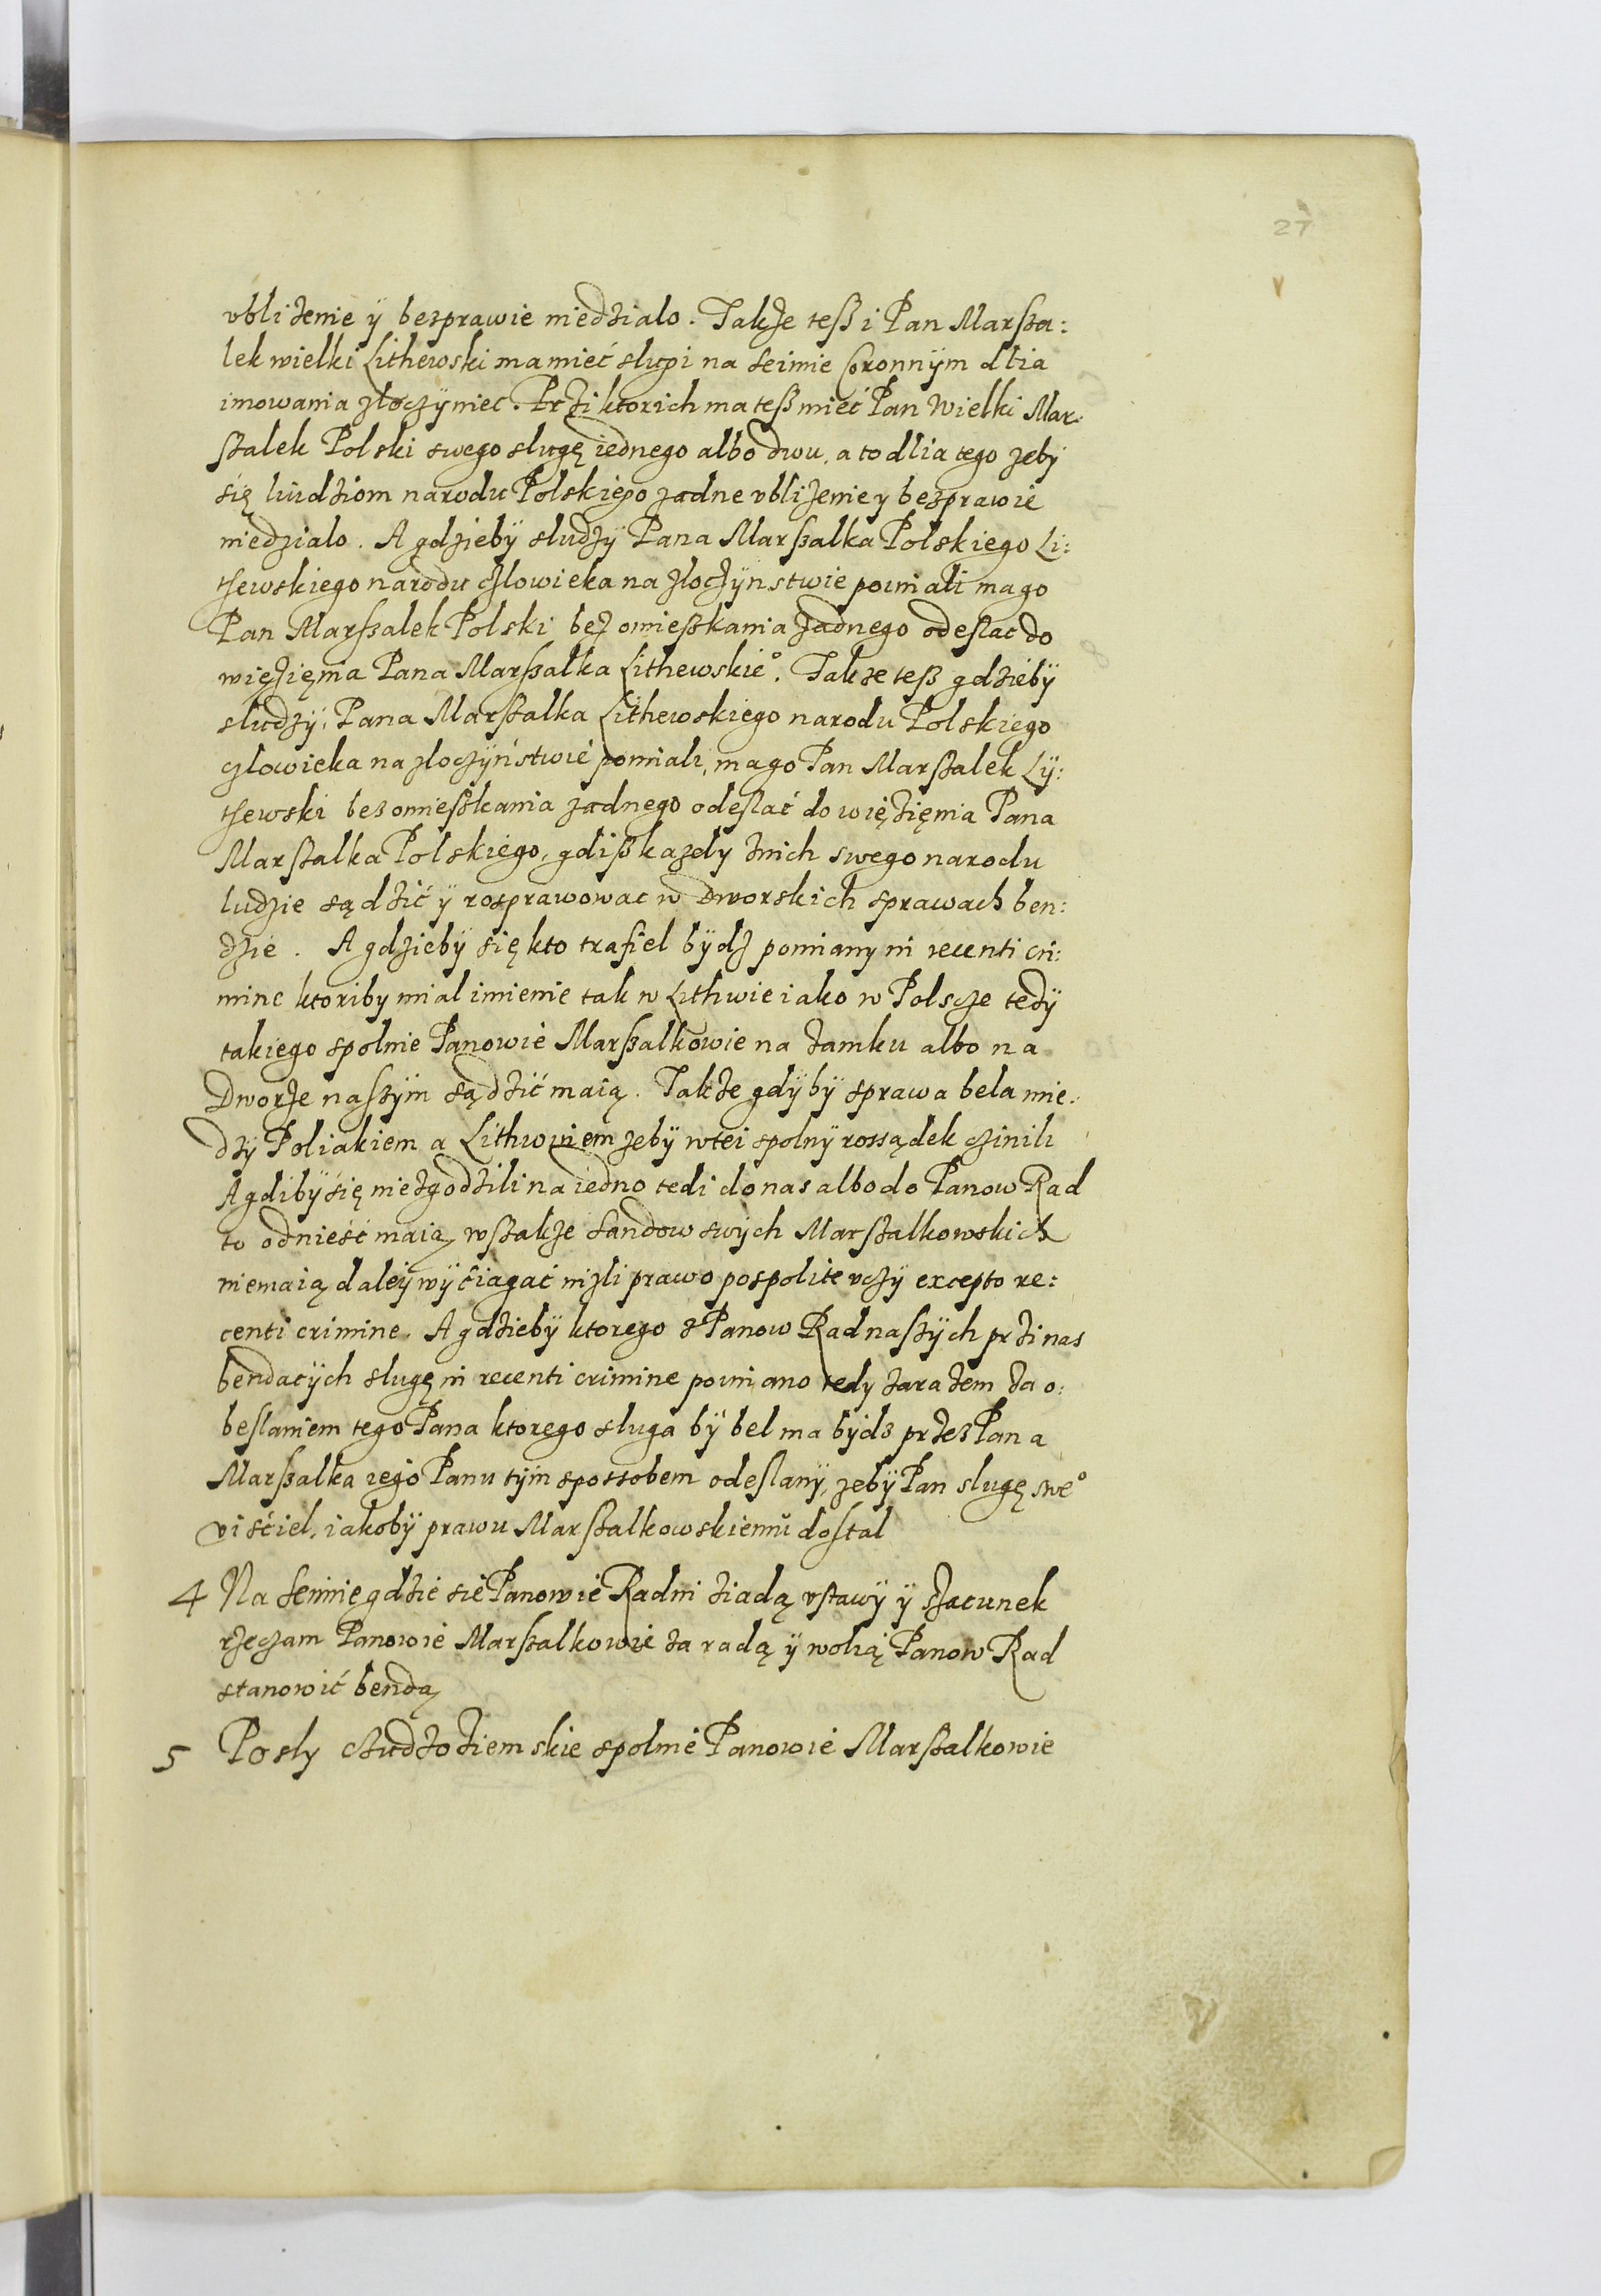 27
vbliżenie ÿ bezprawie niedzialo. Takze teß i Pan Marßa:
lek wielki Lithewski ma mieć slugi na Seimie Coronnÿm dlia
imowania złoczÿniec. Przi ktorich ma teß mieć Pan Wielki Mar:
ßalek Polski swego slugę iednego albo dwu, a to dlia tego zeby
się ludziom narodu Polskiego zadne vbliżenie y bezprawie
niedzialo. A gdziebÿ sludzÿ Pana Marßalka Polskiego Li:
thewskiego narodu człowieka na zloczÿnstwie poimali ma go
Pan Marßalek Polski bez omießkania żadnego odeslac do
więzięnia Pana Marßalka Lithewskie°. Takze teß gdziebÿ
sludzÿ Pana Marßalka Lithewskiego narodu Polskiego
czlowieka na zloczÿństwie poimali, ma go Pan Marßalek Lÿ:
thewski bez omießkania zadnego odeslać do więzięnia Pana
Marßalka Polskiego, gdiß kazdy znich swego narodu
ludzie sądzić ÿ rosprawowac w Dworskich sprawach ben:
dzie. A gdziebÿ się kto trafiel bÿdz poimany in recenti cri:
mine ktoriby mial imienie tak w Lithwie iako w Polscze tedÿ
takiego spolnie Panowie Marßalkowie na zamku albo na
Dworze naszÿm sądzić maią. Takze gdÿbÿ sprawa bela mie:
dzÿ Poliakiem a Lithwinem zebÿ wtei spolnÿ rossądek czinili
A gdibÿ się niezgodzili na iedno tedi do nas albo do Panow Rad
to odnieść maią, wßakze sandow swÿch Marßalkowskich
niemaią daleÿ wÿciagać nizli prawo pospolite vczÿ excepto re:
centi crimine. A gdziebÿ ktorego z Panow Rad naszÿch przi nas
bendacÿch slugę in recenti crimine poimano tedy zarazem za o:
beslaniem tego Pana ktorego sluga bÿ bel ma bÿdz przez Pana
Marßalka iego Panu tÿm spossobem odeslanÿ, zebÿ Pan slugę swe°
viściel, iakobÿ prawu Marßalkowskiemu dostal
4 Na Seimie gdzie sie Panowie Radni ziadą vstawÿ ÿ szacunek
rzeczam Panowie Marßalkowie za radą ÿ wolią Panow Rad
stanowić bendą
5 Posly czudzoziemskie spolnie Panowie Marßalkowie